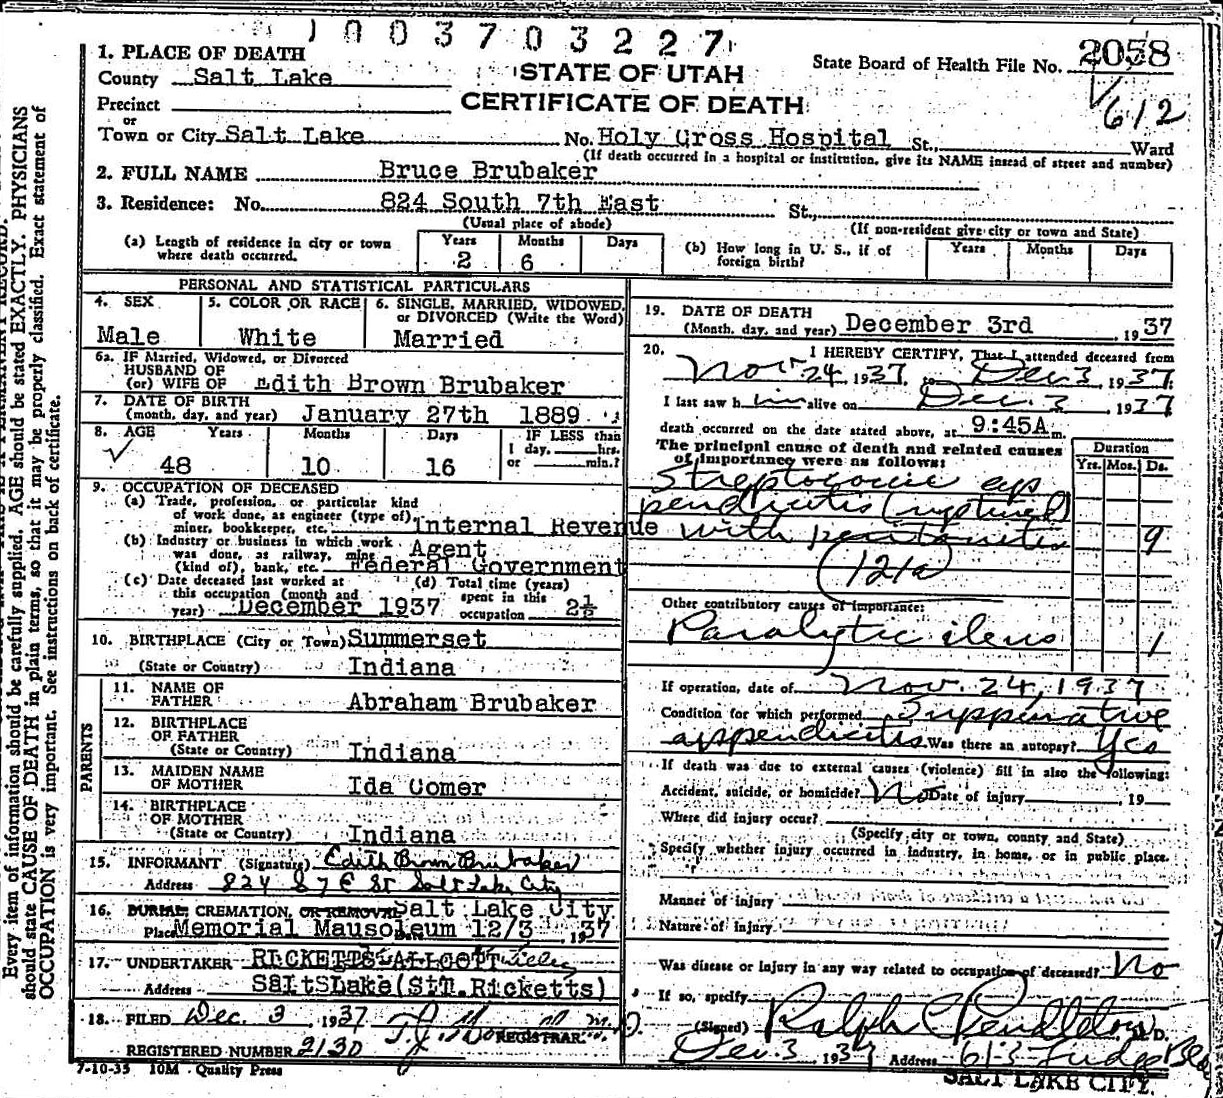 1003703227
1. PLACE OF DEATH
County Salt Lake
STATE OF UTAH
CERTIFICATE OF DEATH
State Board of Health File No. 2058
612
Precinct
or
Town or City Salt Lake No. Holy Cross Hospital St., Ward
(If death occurred in a hospital or institution, give its NAME instead of street and number)
2. FULL NAME Bruce Brubaker
3. Residence: No. 824 South 7th East St.,
(Usual place of abode) (If non-resident give city or town and State)
(a) Length of residence in city or town where death occurred. Years 2 Months 6 Days
(b) How long in U. S., if of foreign birth? Years Months Days
PERSONAL AND STATISTICAL PARTICULARS
4. SEX Male
5. COLOR OR RACE White
6. SINGLE, MARRIED, WIDOWED, or DIVORCED (Write the Word) Married
6a. IF Married, Widowed, or Divorced
HUSBAND OF
(or) WIFE OF Edith Brown Brubaker
7. DATE OF BIRTH
(month, day, and year) January 27th 1889
8. AGE Years Months Days IF LESS than
1 day, hrs.
or min.?
48 10 16
9. OCCUPATION OF DECEASED
(a) Trade, profession, or particular kind
of work done, as engineer (type of),
miner, bookkeeper, etc. Internal Revenue
(b) Industry or business in which work Agent
was done, as railway, mine
(kind of), bank, etc. Federal Government
(c) Date deceased last worked at
this occupation (month and
year) December 1937
(d) Total time (years)
spent in this
occupation 2½
10. BIRTHPLACE (City or Town) Summerset
(State or Country) Indiana
PARENTS
11. NAME OF
FATHER Abraham Brubaker
12. BIRTHPLACE
OF FATHER
(State or Country) Indiana
13. MAIDEN NAME
OF MOTHER Ida Comer
14. BIRTHPLACE
OF MOTHER
(State or Country) Indiana
15. INFORMANT (Signature) Edith Brown Brubaker
Address 824 S 7 E St Salt Lake City
16. BURIAL, CREMATION, OR REMOVAL Salt Lake City
Place Memorial Mausoleum Date 12/3 1937
17. UNDERTAKER RICKETTS-ALLCOTT
Address Salt Lake (S.T. Ricketts)
18. FILED Dec. 3 1937
REGISTRAR
REGISTERED NUMBER 2130
7-10-35 10M Quality Press
19. DATE OF DEATH
(Month, day, and year) December 3rd, 1937
20. I HEREBY CERTIFY, That I attended deceased from
Nov 24 1937 to Dec 3 1937
I last saw him alive on Dec. 3, 1937
death occurred on the date stated above, at 9:45A m.
The principal cause of death and related causes
of importance were as follows:
Duration
Yrs. Mos. Ds.
Streptococcic ap
pendicitis (ruptured)
with peritonitis 9
(121a)
Other contributory causes of importance:
Paralytic ileus 1
If operation, date of Nov. 24, 1937
Condition for which performed Suppurative
appendicitis Was there an autopsy? Yes
If death was due to external causes (violence) fill in also the following:
Accident, suicide, or homicide? No Date of injury 19
Where did injury occur?
(Specify city or town, county and State)
Specify whether injury occurred in industry, in home, or in public place.
Manner of injury
Nature of injury
Was disease or injury in any way related to occupation of deceased? No
If so, specify
(Signed) Ralph C Pendleton M. D.
Dec. 3 1937 Address 613 Judge Bldg
SALT LAKE CITY.
Every item of information should be carefully supplied. AGE should be stated EXACTLY. PHYSICIANS
should state CAUSE OF DEATH in plain terms, so that it may be properly classified. Exact statement of
OCCUPATION is very important. See instructions on back of certificate.